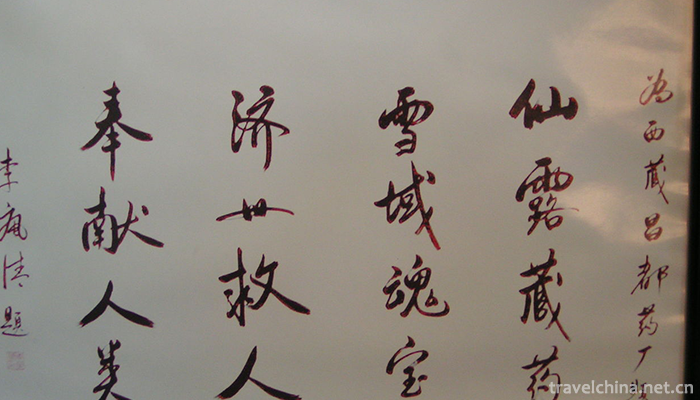 為西藏昌都药厂
仙露藏药
雪域魂宝
济世救人
奉献人类
李清题
travelchina.net.cn